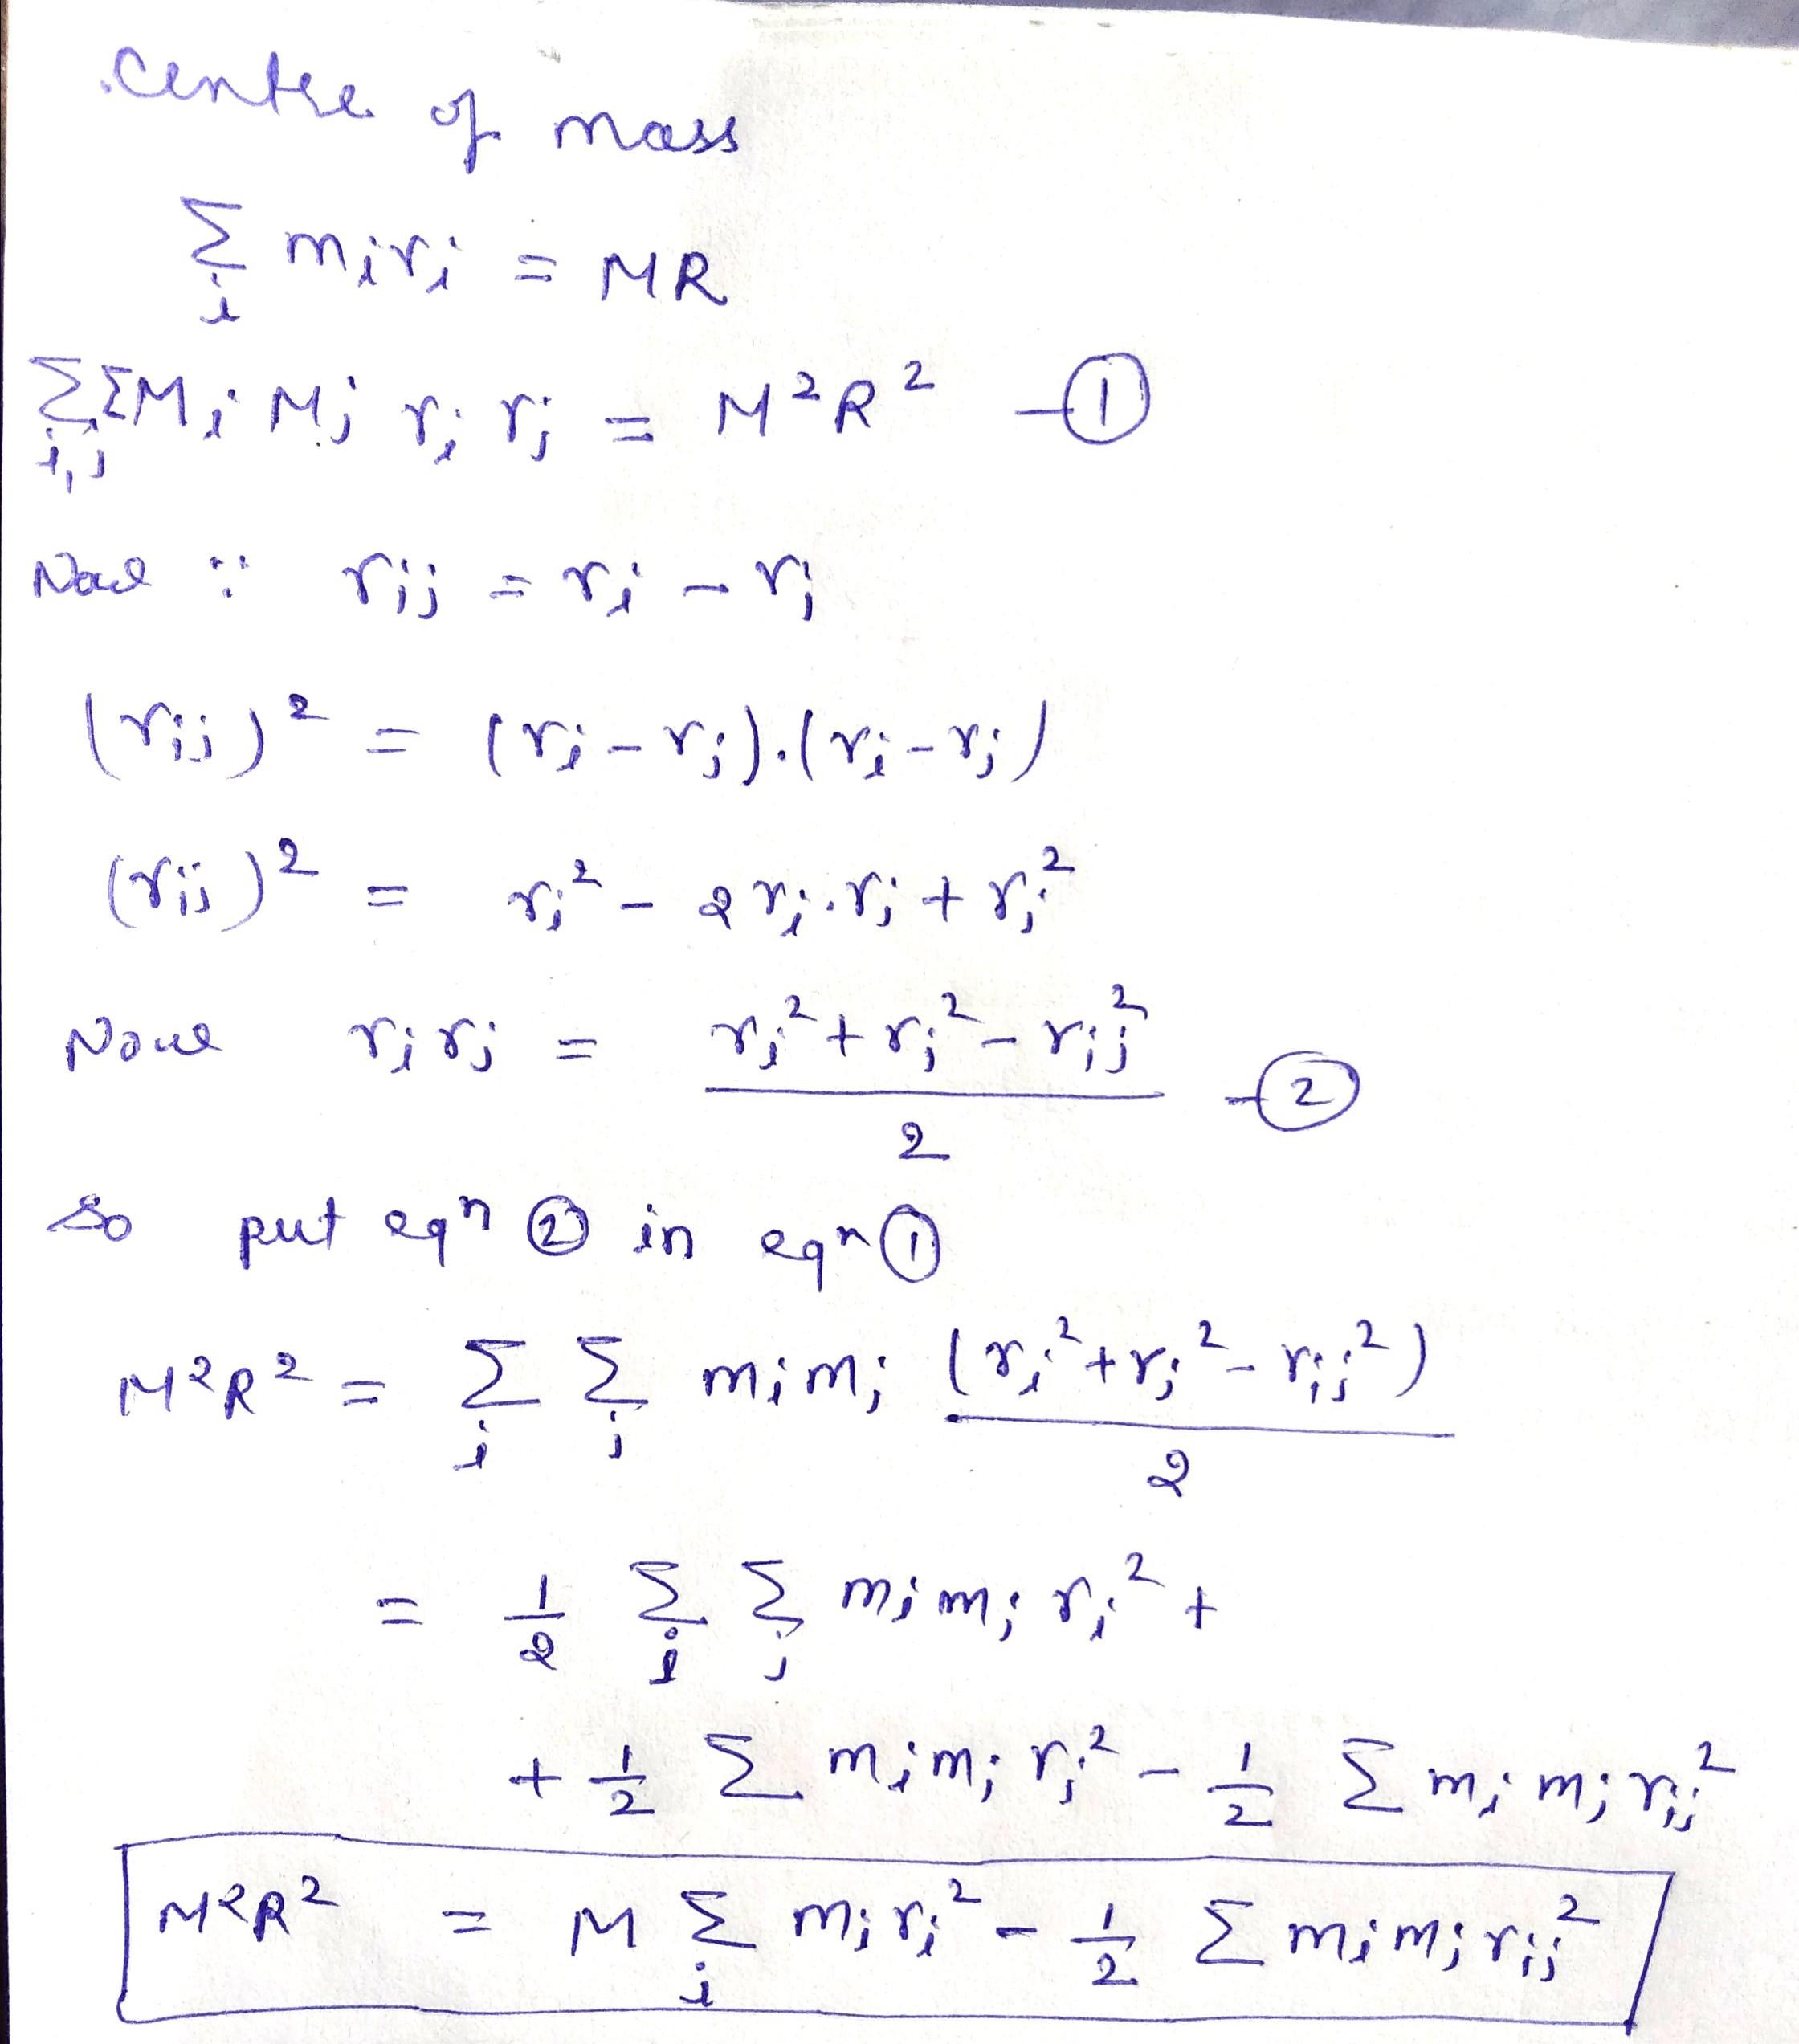 Centre of mass
Σ_i m_i r_i = MR
Σ_{i,j} Σ M_i M_j r_i r_j = M²R² —①
Now ∵ r_ij = r_i − r_j
(r_ij)² = (r_i − r_j).(r_i − r_j)
(r_ij)² = r_i² − 2 r_i.r_j + r_j²
Now r_i r_j = (r_i² + r_j² − r_ij²) / 2 —②
So put eqⁿ ② in eqⁿ ①
M²R² = Σ_i Σ_j m_i m_j (r_i² + r_j² − r_ij²) / 2
= 1/2 Σ_i Σ_j m_i m_j r_i² +
+ 1/2 Σ m_i m_j r_j² − 1/2 Σ m_i m_j r_ij²
M²R² = M Σ_i m_i r_i² − 1/2 Σ m_i m_j r_ij²